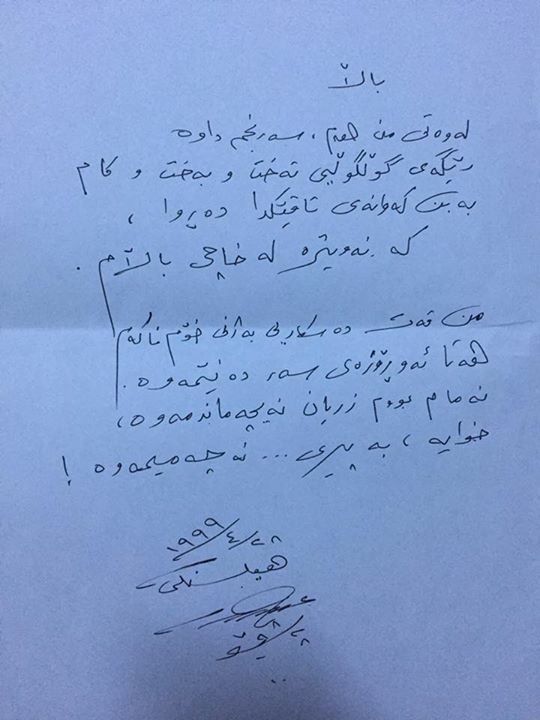 باڵا
لەوەتی من هەم، سەرنجم داوە
ڕێگەی گوڵگوڵیی تەخت و بەخت و کام
بە بن کەوانەی تاقێکدا دەڕوا،
کە نەویترە لە خاچی باڵام.
من قەت دەسکاریی بەژنی خۆم ناکەم
هەتا ئەو ڕۆژەی سەر دەنێمەوە.
نەمام بووم زریان نەیچەماندمەوە،
خوایە، بە پیری... نەچەمیمەوە!
١٩٩٩/٤/٢٨